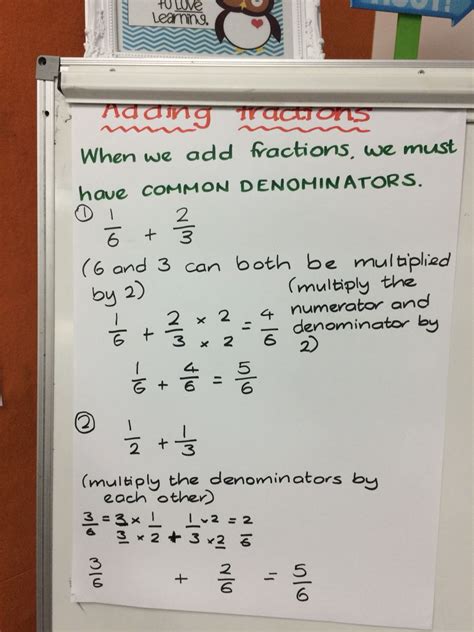 to love
learning.
Adding fractions
When we add fractions, we must
have COMMON DENOMINATORS.
① 1/6 + 2/3
(6 and 3 can both be multiplied
by 2)
(multiply the
numerator and
denominator by
2)
1/6 + 2/3 × 2/× 2 = 4/6
1/6 + 4/6 = 5/6
② 1/2 + 1/3
(multiply the denominators by
each other)
3/6 = 3/3 × 1/× 2 + 1/3 × 2/× 2 = 2/6
3/6 + 2/6 = 5/6